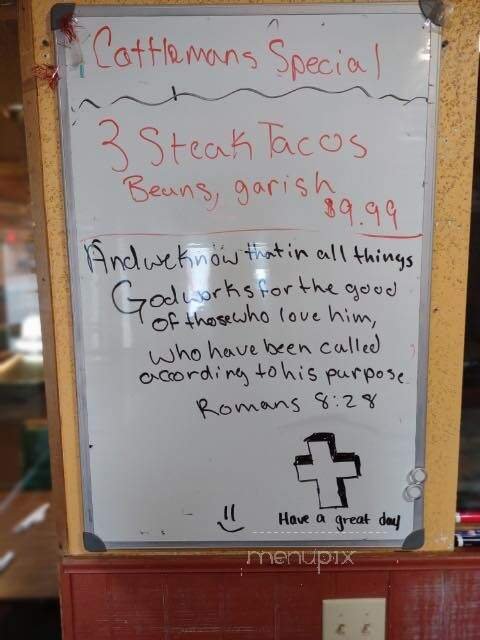 Cattlemans Special
3 Steak Tacos
Beans, garish
$9.99
And we know that in all things
God works for the good
of those who love him,
who have been called
according to his purpose.
Romans 8:28
Have a great day
menupix